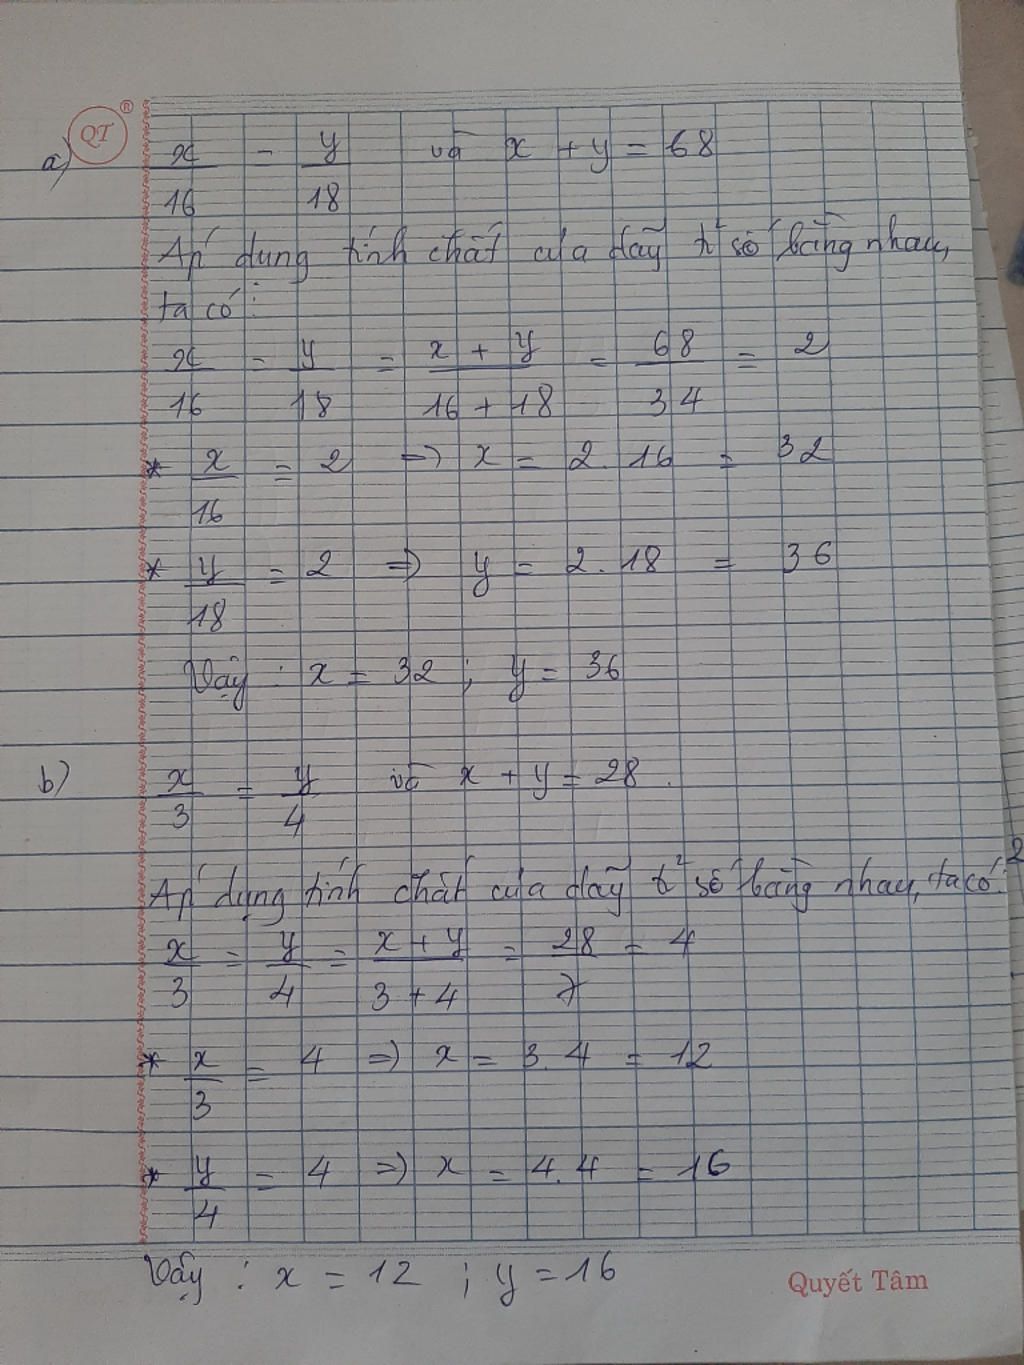 QT ®
a) x/16 = y/18 và x + y = 68
Áp dụng tính chất của dãy tỉ số bằng nhau,
ta có:
x/16 = y/18 = (x + y)/(16 + 18) = 68/34 = 2
* x/16 = 2 => x = 2.16 = 32
* y/18 = 2 => y = 2.18 = 36
Vậy : x = 32 ; y = 36
b) x/3 = y/4 và x + y = 28.
Áp dụng tính chất của dãy tỉ số bằng nhau, ta có:
x/3 = y/4 = (x + y)/(3 + 4) = 28/7 = 4
* x/3 = 4 => x = 3.4 = 12
* y/4 = 4 => x = 4.4 = 16
Vậy : x = 12 ; y = 16
Quyết Tâm